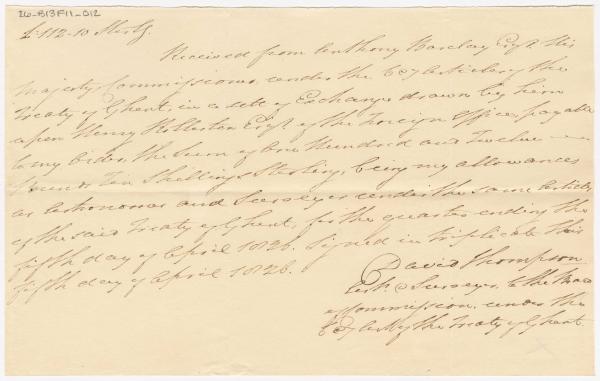 26-B13F11-012
£112-10 Sterlg.
Received from Anthony Barclay Esqr. His
Majesty's Commissioner under the 6 & 7 Articles of the
Treaty of Ghent, in a sett of Exchange drawn by him
upon Henry Esqr. of the Foreign Office, payable
to my Order, the Sum of One Hundred and Twelve
pounds Ten Shellings Sterling, being my allowances
as Astronomer and Surveyor under the same Articles
of the said Treaty of Ghent, for the quarter ending the
fifth day of April 1826. Signed in triplicate this
fifth day of April 1826.
David Thompson
Astr. & Surveyor to the
Commission, under the
6 & 7 Art. of the Treaty of Ghent.